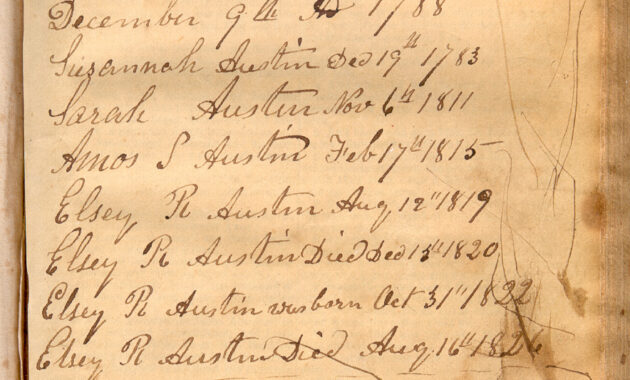 December 9th AD 1788
Susannah Austin Dec 19th 1783
Sarah Austin Nov 6th 1811
Amos S Austin Feb 17th 1815
Elsey R Austin Aug 12th 1819
Elsey R Austin Died Dec 15th 1820
Elsey R Austin was born Oct 31st 1822
Elsey R Austin Died Aug 16th 1826